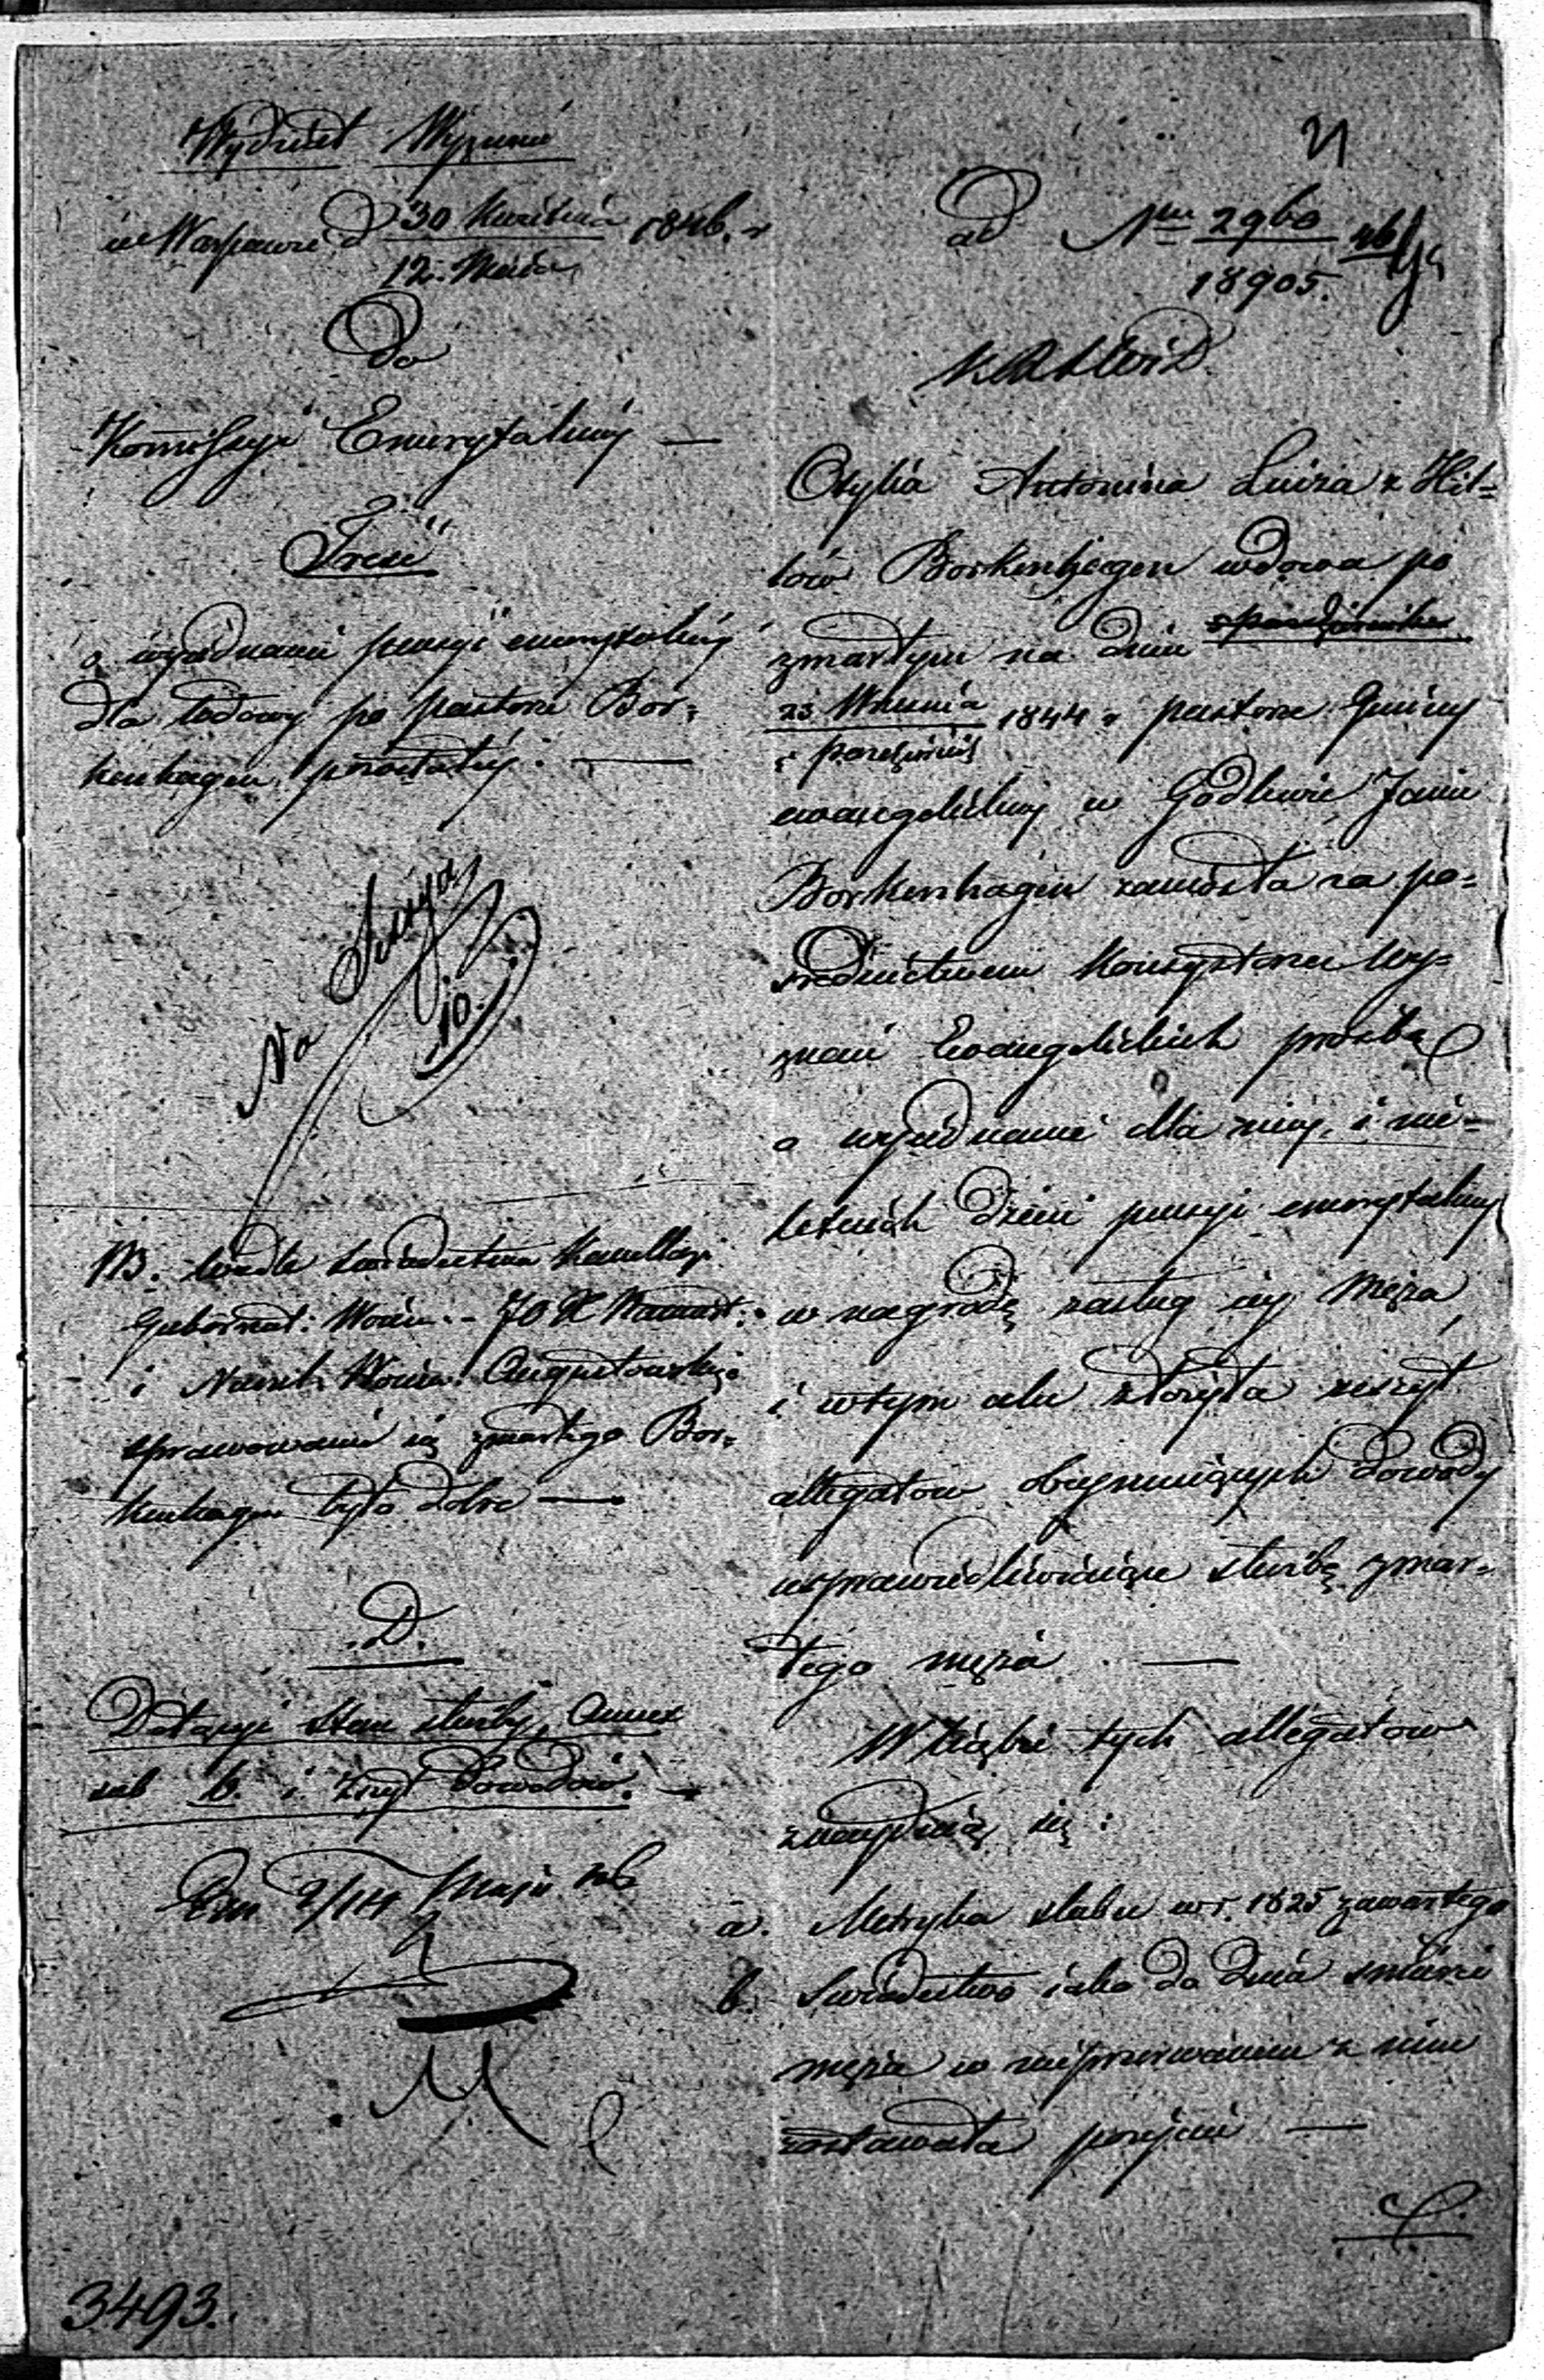 Wydział Wyznań
w Warszawie d 30 Kwietnia 1846. r
12. Maia
Do
Kommissyi Emerytalney —
Treść
o wyiednanie pensyi emerytalney
dla wdowy po pastorze Bor=
kenhagen pozostałey. —
Na Sessyą
10.
NB. wedle swiadectwa Kancellaryi
Gubernat: Woien.
i Naczeln Woien. Augustowskiego
sprawowanie się zmarłego Bor=
kenhagen było dobre —
D.
Dołącza stan służby, Annex
sub b. i Zszyt dowodów. —
Exp 2/14 Maja
3493.
21
ad Nr 2960 46
18905.
Otylia Antonina Luiza z Hit=
low Borkenhagen wdowa po
zmarłym na dniu
23 Września 1844 r pastorze Gminy
ewangelickiey w Godlewie Janie
Borkenhagen zaniosła za po=
srednictwem Konsystorza wy=
znań Ewangelickich prosbę
o wyiednanie dla niey i nie=
letnich dzieci pensyi emerytalney
w nagrodę zasług iey męża,
i w tym celu złożyła zeszyt
allegatow obeymuiących dowody
usprawiedliwiaiące służbę zmar=
łego męża —
W liczbie tych allegatow
znayduią się:
a. Metryka slubu w r. 1825 zawartego
b. Swiadectwo iako do dnia smierci
męża w nieprzerwanem z nim
zostawała pożyciu —